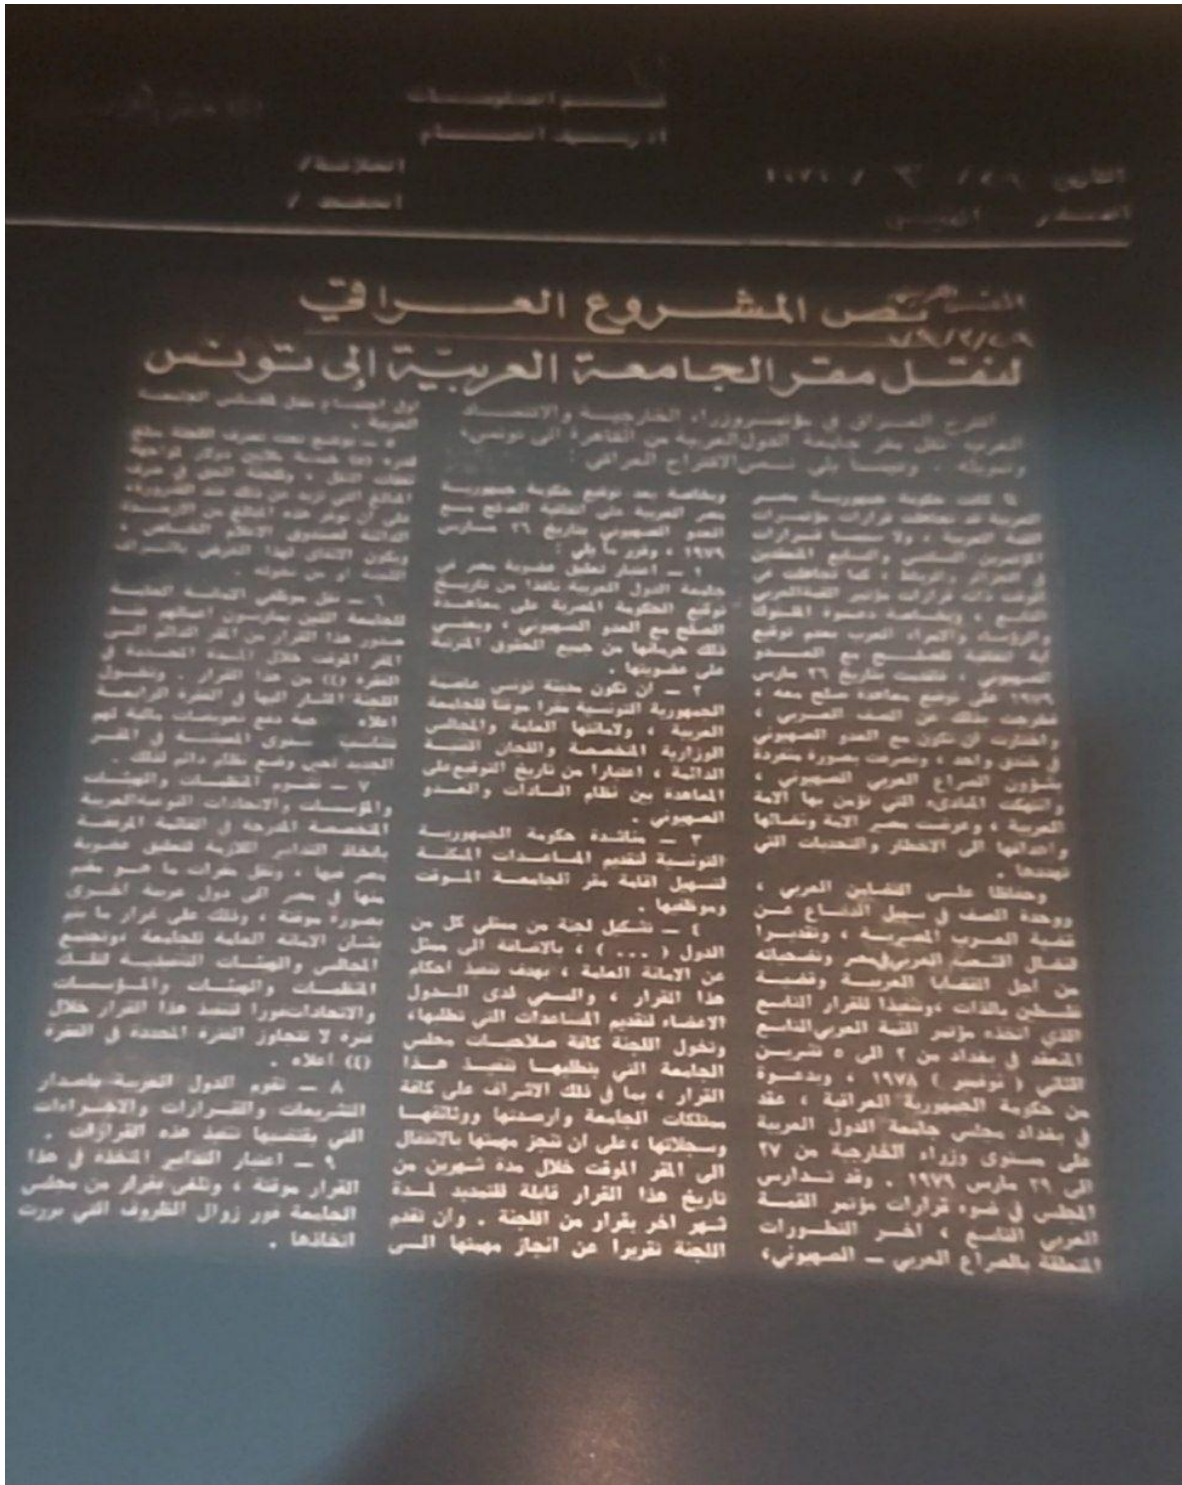 التاريخ ٢٩ / ٣ / ١٩٧٩
المصدر
نص المشروع العراقي
٧٩/٣/٢٩
لنقل مقر الجامعة العربية إلى تونس
اقترح العراق في مؤتمر وزراء الخارجية والاقتصاد
العرب نقل مقر جامعة الدول العربية من القاهرة الى تونس،
وفيما يلي نص الاقتراح العراقي :
كانت حكومة جمهورية مصر
العربية قد تجاهلت قرارات مؤتمرات
القمة العربية ، ولا سيما قرارات
المؤتمرين السادس والسابع المنعقدين
في الجزائر والرباط ، كما تجاهلت في
الوقت ذاته قرارات مؤتمر القمة العربي
التاسع ، وبخاصة دعوة الملوك
والرؤساء والامراء العرب بعدم توقيع
اية اتفاقية للصلح مع العدو
الصهيوني ، فأقدمت بتاريخ ٢٦ مارس
١٩٧٩ على توقيع معاهدة صلح معه ،
فخرجت بذلك عن الصف العربي ،
واختارت ان تكون مع العدو الصهيوني
في خندق واحد ، وتصرفت بصورة منفردة
بشؤون الصراع العربي الصهيوني ،
وانتهكت المبادىء التي تؤمن بها الامة
العربية ، وعرضت مصير الامة ونضالها
واهدافها الى الاخطار والتحديات التي
تهددها .
وحفاظا على التضامن العربي ،
ووحدة الصف في سبيل الدفاع عن
قضية العرب المصيرية ، وتقديرا
لنضال الشعب العربي في مصر وتضحياته
من اجل القضايا العربية وقضية
فلسطين بالذات ، وتنفيذا للقرار التاسع
الذي اتخذه مؤتمر القمة العربي التاسع
المنعقد في بغداد من ٢ الى ٥ تشرين
الثاني ( نوفمبر ) ١٩٧٨ ، وبدعوة
من حكومة الجمهورية العراقية ، عقد
في بغداد مجلس جامعة الدول العربية
على مستوى وزراء الخارجية من ٢٧
الى ٢٩ مارس ١٩٧٩ . وقد تدارس
المجلس في ضوء قرارات مؤتمر القمة
العربي التاسع ، اخر التطورات
المتعلقة بالصراع العربي — الصهيوني،
وبخاصة بعد توقيع حكومة جمهورية
مصر العربية على اتفاقية الصلح مع
العدو الصهيوني بتاريخ ٢٦ مارس
١٩٧٩ ، وقرر ما يلي :
١ — اعتبار تعليق عضوية مصر في
جامعة الدول العربية نافذا من تاريخ
توقيع الحكومة المصرية على معاهدة
الصلح مع العدو الصهيوني ، ويعني
ذلك حرمانها من جميع الحقوق المترتبة
على عضويتها .
٢ — ان تكون مدينة تونس عاصمة
الجمهورية التونسية مقرا مؤقتا للجامعة
العربية ، ولامانتها العامة والمجالس
الوزارية المتخصصة واللجان الفنية
الدائمة ، اعتبارا من تاريخ التوقيع على
المعاهدة بين نظام السادات والعدو
الصهيوني .
٣ — مناشدة حكومة الجمهورية
التونسية لتقديم المساعدات الممكنة
لتسهيل اقامة مقر الجامعة المؤقت
وموظفيها .
٤ — تشكيل لجنة من ممثلي كل من
الدول ( ... ) ، بالاضافة الى ممثل
عن الامانة العامة ، بهدف تنفيذ احكام
هذا القرار ، والسعي لدى الدول
الاعضاء لتقديم المساعدات التي تطلبها،
وتخول اللجنة كافة صلاحيات مجلس
الجامعة التي يتطلبها تنفيذ هذا
القرار ، بما في ذلك الاشراف على كافة
ممتلكات الجامعة وارصدتها ووثائقها
وسجلاتها ، على ان تنجز مهمتها بالانتقال
الى المقر المؤقت خلال مدة شهرين من
تاريخ هذا القرار قابلة للتمديد لمدة
شهر اخر بقرار من اللجنة . وان تقدم
اللجنة تقريرا عن انجاز مهمتها الى
اول اجتماع مقبل لمجلس الجامعة
العربية .
٥ — توضع تحت تصرف اللجنة مبلغ
على أن توفر هذه المبالغ من الارصدة
٦ — نقل موظفي الامانة العامة
للجامعة الذين يمارسون اعمالهم عند
صدور هذا القرار من المقر الدائم الى
المقر المؤقت خلال المدة المحددة في
الفقرة (٤) من هذا القرار . وتخول
اللجنة المشار اليها في الفقرة الرابعة
اعلاه دفع تعويضات مالية لهم
تتناسب مستوى المعيشة في المقر
الجديد لحين وضع نظام دائم لذلك .
٧ — تقوم المنظمات والهيئات
والمؤسسات والاتحادات العربية
المتخصصة المدرجة في القائمة المرفقة
باتخاذ التدابير اللازمة لتعليق عضوية
مصر فيها ، ونقل مقرات ما هو مقيم
منها في مصر الى دول عربية اخرى
بصورة مؤقتة ، وذلك على غرار ما يتم
بشأن الامانة العامة للجامعة ، وتجتمع
المجالس والهيئات التنفيذية لتلك
المنظمات والهيئات والمؤسسات
والاتحادات فورا لتنفيذ هذا القرار خلال
فترة لا تتجاوز الفترة المحددة في الفقرة
(٤) اعلاه .
٨ — تقوم الدول العربية باصدار
التشريعات والقرارات والاجراءات
التي يقتضيها تنفيذ هذه القرارات .
٩ — اعتبار التدابير المتخذة في هذا
القرار مؤقتة ، وتلغى بقرار من مجلس
الجامعة فور زوال الظروف التي بررت
اتخاذها .